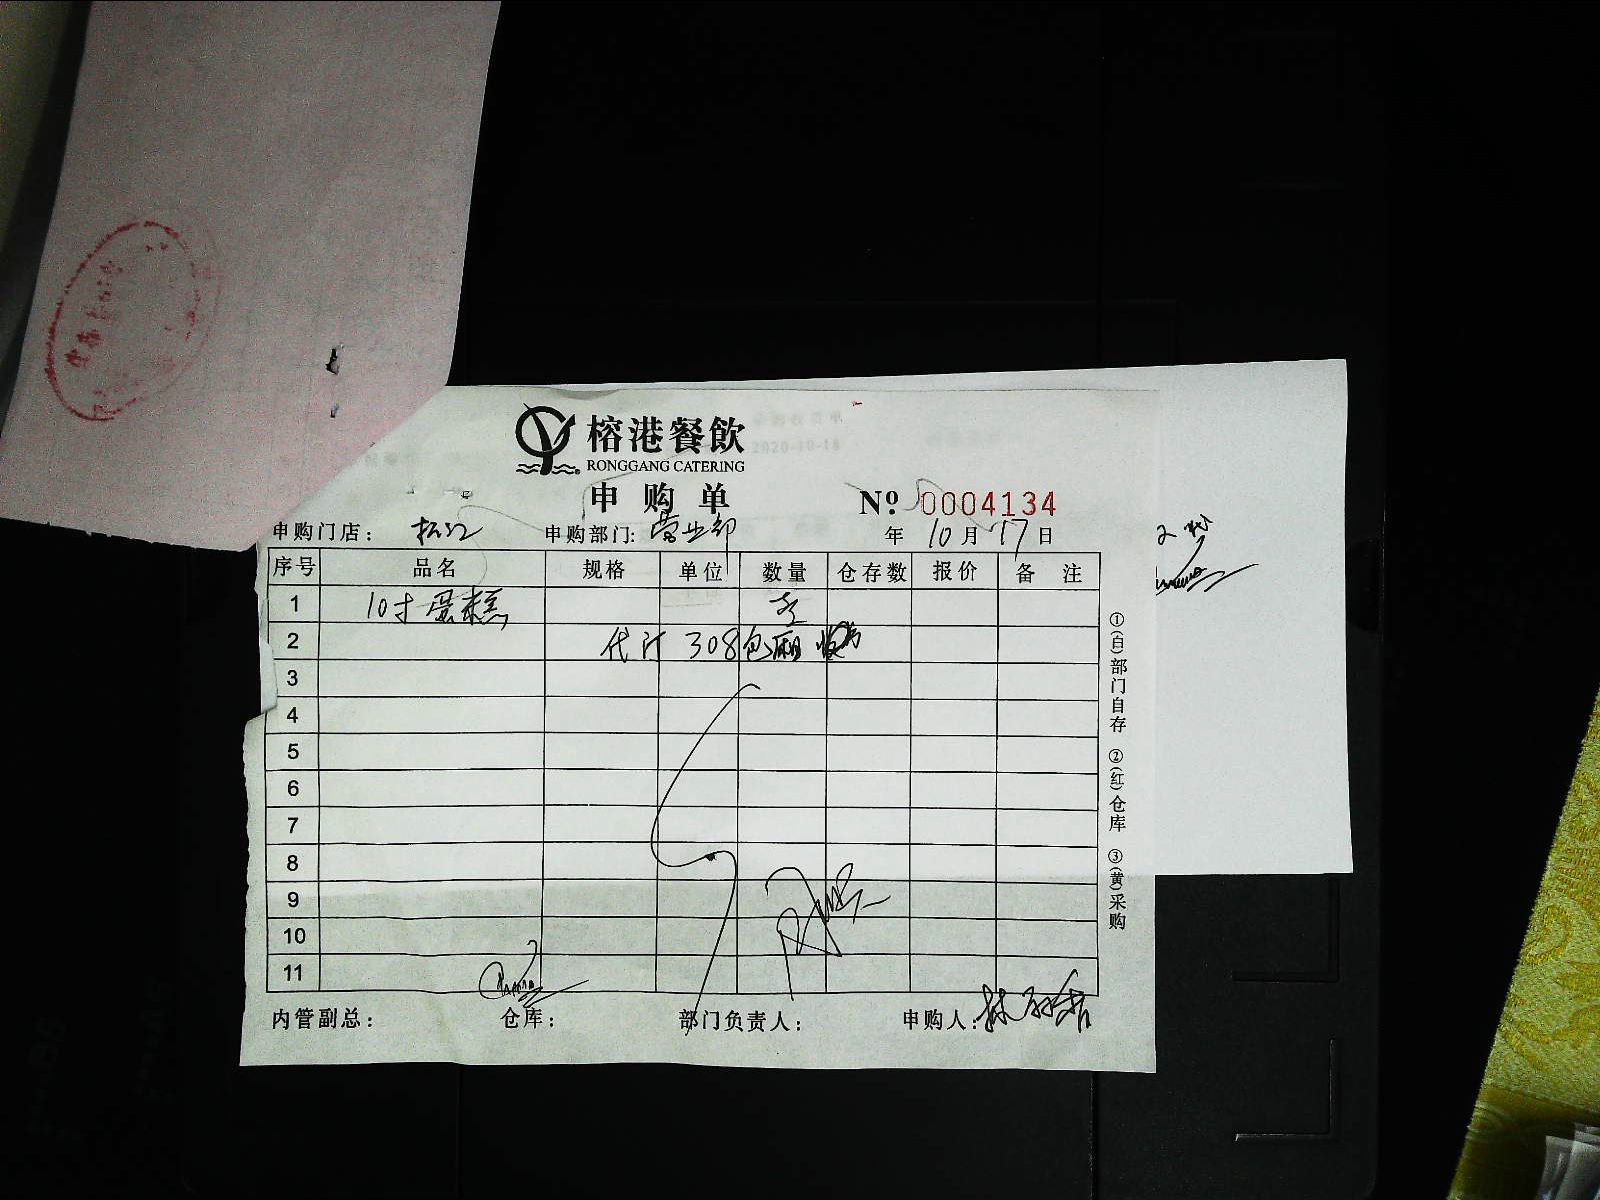 榕港餐飲
RONGGANG CATERING
申购单
№ 0004134
申购门店： 松江 申购部门: 营业部 年 10 月 17 日
序号 品名 规格 单位 数量 仓存数 报价 备 注
1 10寸蛋糕
2 代订 308包厢
3
4
5
6
7
8
9
10
11
内管副总： 仓库： 部门负责人： 申购人：
①(白)部门自存 ②(红)仓库 ③(黄)采购
2020-10-18